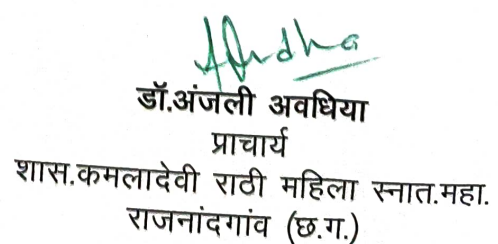 डॉ.अंजली अवधिया
प्राचार्य
शास.कमलादेवी राठी महिला स्नात.महा.
राजनांदगांव (छ.ग.)